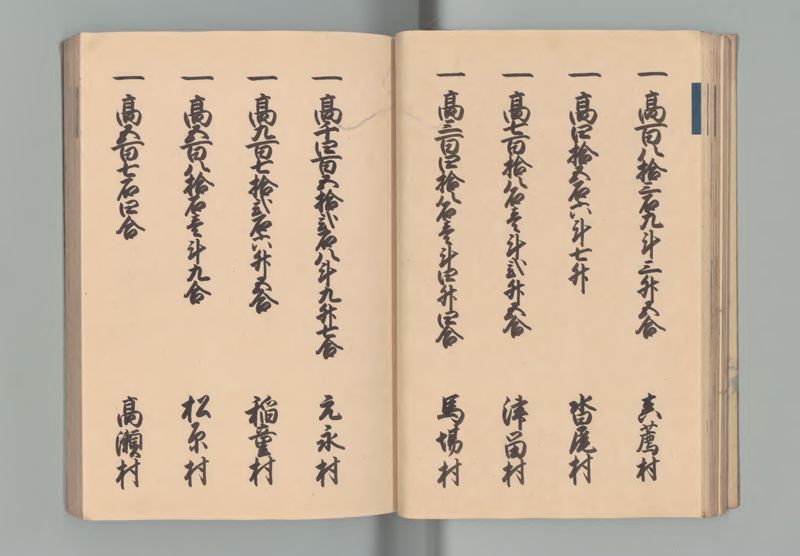 一高百八拾三石九斗三升五合 真薦村
一高四拾五石六斗七升 沓尾村
一高七百拾八石壱斗弐升五合 津留村
一高三百四拾八石壱斗四升四合 馬場村
一高千四百五拾弐石八斗九升七合 元永村
一高九百七拾弐石六升五合 稲童村
一高五百八拾石壱斗九合 松原村
一高五百七石四合 高瀬村